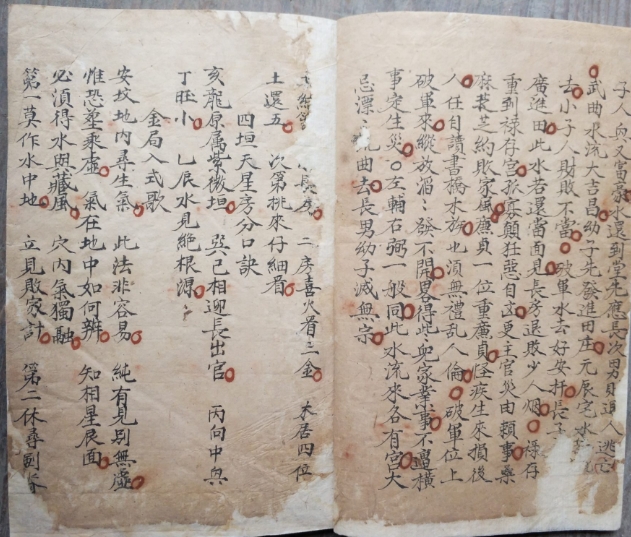 子人興又富豪水還到堂
武曲水流大吉昌幼子先發進田庄元辰宅水
去小子人財敗不當破軍水去好安扦長子
廣進田此水若還當面見長房退敗少人烟祿存
重到祿存宮孤寡顛狂惡自更主官災由
麻衣芝約敗家風廉貞一位重廉貞怪疾生來損後
人任自讀書搞木族也須無禮乱人倫破軍位上
破軍來縱放滔發不開畧得些家業事不當橫
事定生災左輔右弼一般同此水流來各有宮大
忌漂曲去長男幼子滅無宗
二房喜火看三金木居四位
土還五次第挑來仔細看
四垣天星房分口訣
亥龍原属紫微垣巽己相迎長出官丙向中興
丁旺小乙辰水見絕根源
金局入式歌
安坟地內尋生氣此法非容易純有見別無虛
惟恐葬乘虛氣在地中如何辨知相星辰面
必須得水與藏風穴內氣獨融
第一莫作水中地立見敗家計第二休尋劍脊